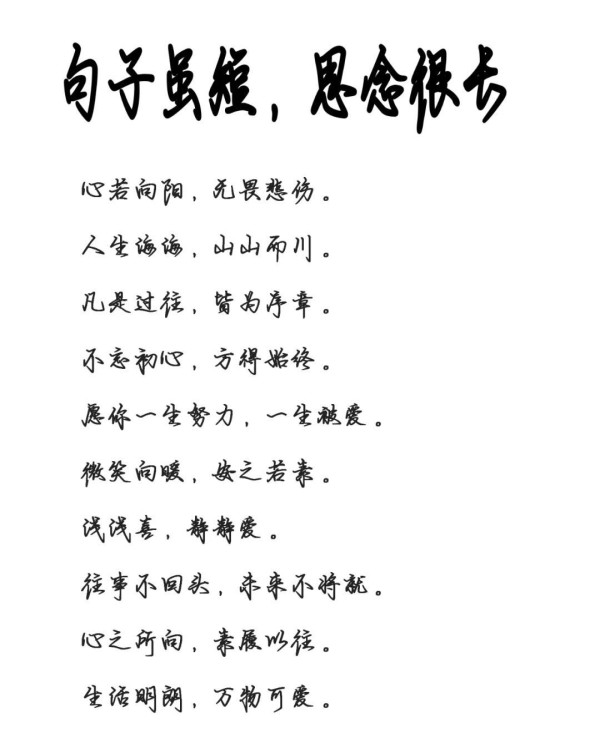 句子虽短，思念很长
心若向阳，无畏悲伤。
人生海海，山山而川。
凡是过往，皆为序章。
不忘初心，方得始终。
愿你一生努力，一生被爱。
微笑向暖，安之若素。
浅浅喜，静静爱。
往事不回头，未来不将就。
心之所向，素履以往。
生活明朗，万物可爱。